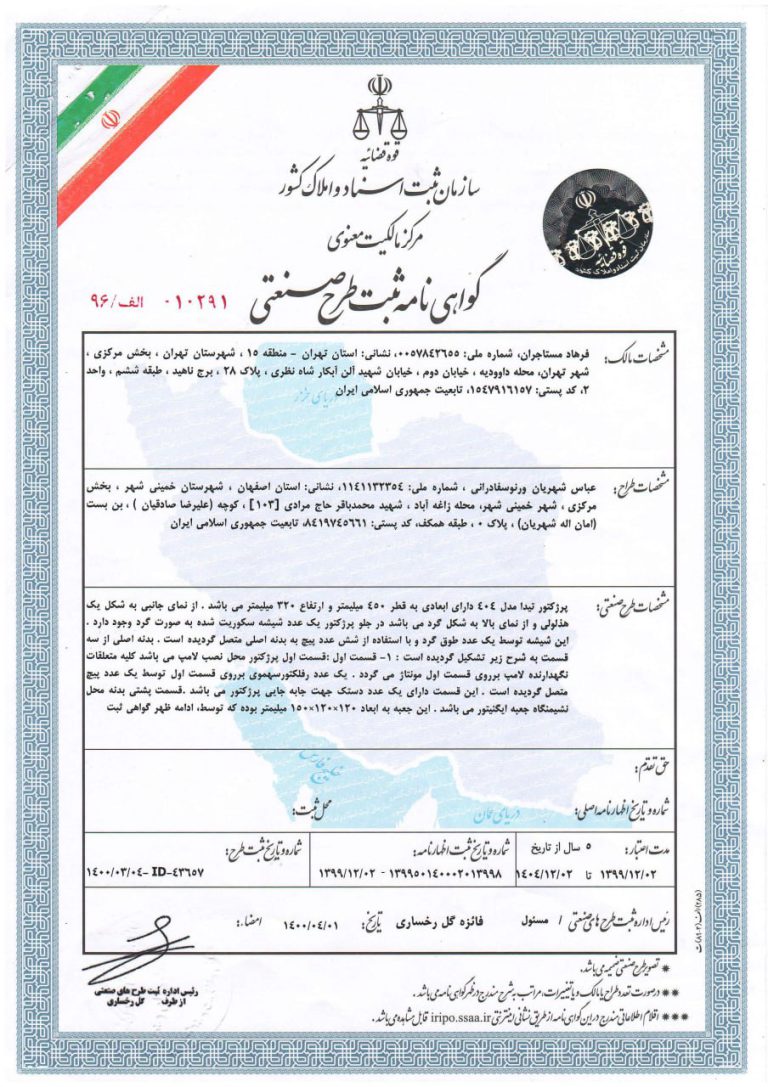 قوه قضائیه
سازمان ثبت اسناد و املاک کشور
مرکز مالکیت معنوی
گواهی نامه ثبت طرح صنعتی
۰۱۰۲۹۱ الف/۹۶
قوه قضائیه
سازمان ثبت اسناد و املاک کشور
مشخصات مالک: فرهاد مستاجران، شماره ملی: ۰۰۵۷۸۴۲۶۵۵، نشانی: استان تهران - منطقه ۱۵ ، شهرستان تهران ، بخش مرکزی ،
شهر تهران، محله داوودیه ، خیابان دوم ، خیابان شهید آلن آبکار شاه نظری ، پلاک ۲۸ ، برج ناهید ، طبقه ششم ، واحد
۲، کد پستی: ۱۵۴۷۹۱۶۱۵۷، تابعیت جمهوری اسلامی ایران
دریای خزر
مشخصات طراح: عباس شهریان ورنوسفادرانی ، شماره ملی: ۱۱۴۱۱۳۲۳۵۴، نشانی: استان اصفهان ، شهرستان خمینی شهر ، بخش
مرکزی ، شهر خمینی شهر، محله زاغه آباد ، شهید محمدباقر حاج مرادی [۱۰۳] ، کوچه (علیرضا صادقیان ) ، بن بست
(امان اله شهریان) ، پلاک ۰ ، طبقه همکف، کد پستی: ۸۴۱۹۷۴۵۶۶۱، تابعیت جمهوری اسلامی ایران
مشخصات طرح صنعتی: پرژکتور تیدا مدل ۴۰۴ دارای ابعادی به قطر ۴۵۰ میلیمتر و ارتفاع ۳۲۰ میلیمتر می باشد . از نمای جانبی به شکل یک
هذلولی و از نمای بالا به شکل گرد می باشد در جلو پرژکتور یک عدد شیشه سکوریت شده به صورت گرد وجود دارد .
این شیشه توسط یک عدد طوق گرد و با استفاده از شش عدد پیچ به بدنه اصلی متصل گردیده است . بدنه اصلی از سه
قسمت به شرح زیر تشکیل گردیده است : ۱- قسمت اول :قسمت اول پرژکتور محل نصب لامپ می باشد کلیه متعلقات
نگهدارنده لامپ برروی قسمت اول مونتاژ می گردد . یک عدد رفلکتورسهموی برروی قسمت اول توسط یک عدد پیچ
متصل گردیده است . این قسمت دارای یک عدد دستک جهت جابه جایی پرژکتور می باشد .قسمت پشتی بدنه محل
نشیمنگاه جعبه ایگنیتور می باشد . این جعبه به ابعاد ۱۲۰×۱۲۰×۱۵۰ میلیمتر بوده که توسط، ادامه ظهر گواهی ثبت
خلیج فارس
حق تقدم:
شماره و تاریخ اظهارنامه اصلی: محل ثبت:
دریای عمان
مدت اعتبار: ۵ سال از تاریخ
۱۳۹۹/۱۲/۰۲ تا ۱۴۰۴/۱۲/۰۲
شماره و تاریخ ثبت اظهارنامه:
۱۳۹۹۵۰۱۴۰۰۰۲۰۱۳۹۹۸ - ۱۳۹۹/۱۲/۰۲
شماره و تاریخ ثبت طرح:
ID-۴۳۶۵۷ -۱۴۰۰/۰۳/۰۴
رئیس اداره ثبت طرح های صنعتی / مسئول فائزه گل رخساری تاریخ: ۱۴۰۰/۰۴/۰۱ امضاء:
رئیس اداره ثبت طرح های صنعتی
از طرف گل رخساری
* تصویر طرح صنعتی ضمیمه می باشد.
** در صورت تعدد طراح یا مالک و یا تغییرات، مراتب به شرح مندرج در ظهر گواهی نامه می باشد.
*** اقلام اطلاعاتی مندرج در این گواهی نامه از طریق نشانی اینترنتی iripo.ssaa.ir قابل مشاهده می باشد.